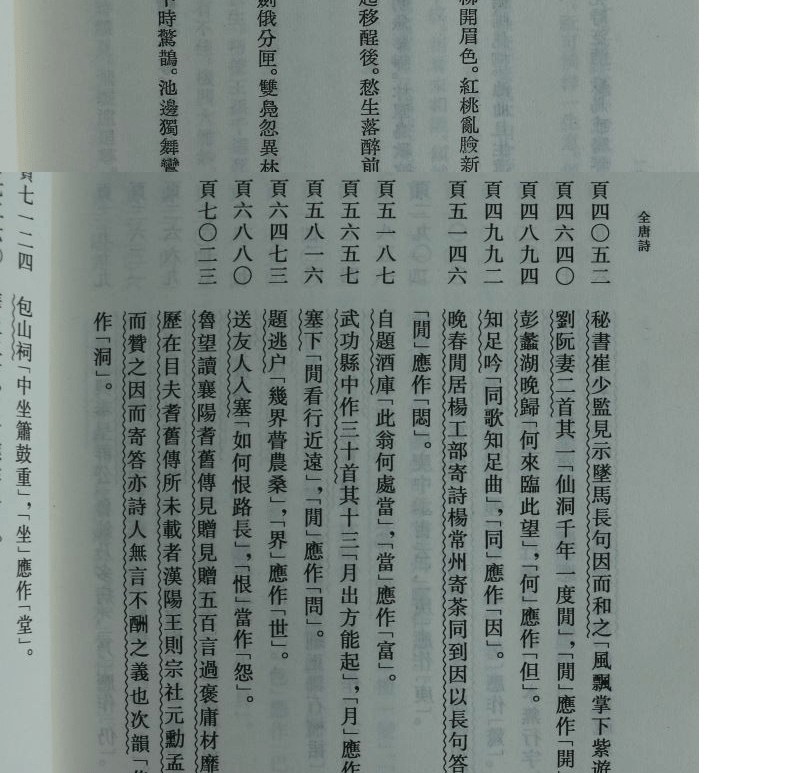 柳開眉色。紅桃亂臉新
起移醒後。愁生落醉前
劍俄分匣。雙鳧忽異林
下時驚鵲。池邊獨舞鸞
全唐詩
頁四〇五二 秘書崔少監見示墜馬長句因而和之「風飄掌下紫遊
頁四六四〇 劉阮妻二首其一「仙洞千年一度閒」,「閒」應作「開
頁四八九四 彭蠡湖晚歸「何來臨此望」,「何」應作「但」。
頁四九九二 知足吟「同歌知足曲」,「同」應作「因」。
頁五一四六 晚春閒居楊工部寄詩楊常州寄茶同到因以長句答
「閒」應作「悶」。
頁五一八七 自題酒庫「此翁何處當」,「當」應作「富」。
頁五六五七 武功縣中作三十首其十三「月出方能起」,「月」應作
頁五八一六 塞下「閒看行近遠」,「閒」應作「問」。
頁六四七三 題逃户「幾界瞢農桑」,「界」應作「世」。
頁六八八〇 送友人入塞「如何恨路長」,「恨」當作「怨」。
頁七〇二三 魯望讀襄陽耆舊傳見贈見贈五百言過褒庸材靡
歷在目夫耆舊傳所未載者漢陽王則宗社元勳孟
而贊之因而寄答亦詩人無言不酬之義也次韻「
作「洞」。
頁七一二四 包山祠「中坐簫鼓重」,「坐」應作「堂」。